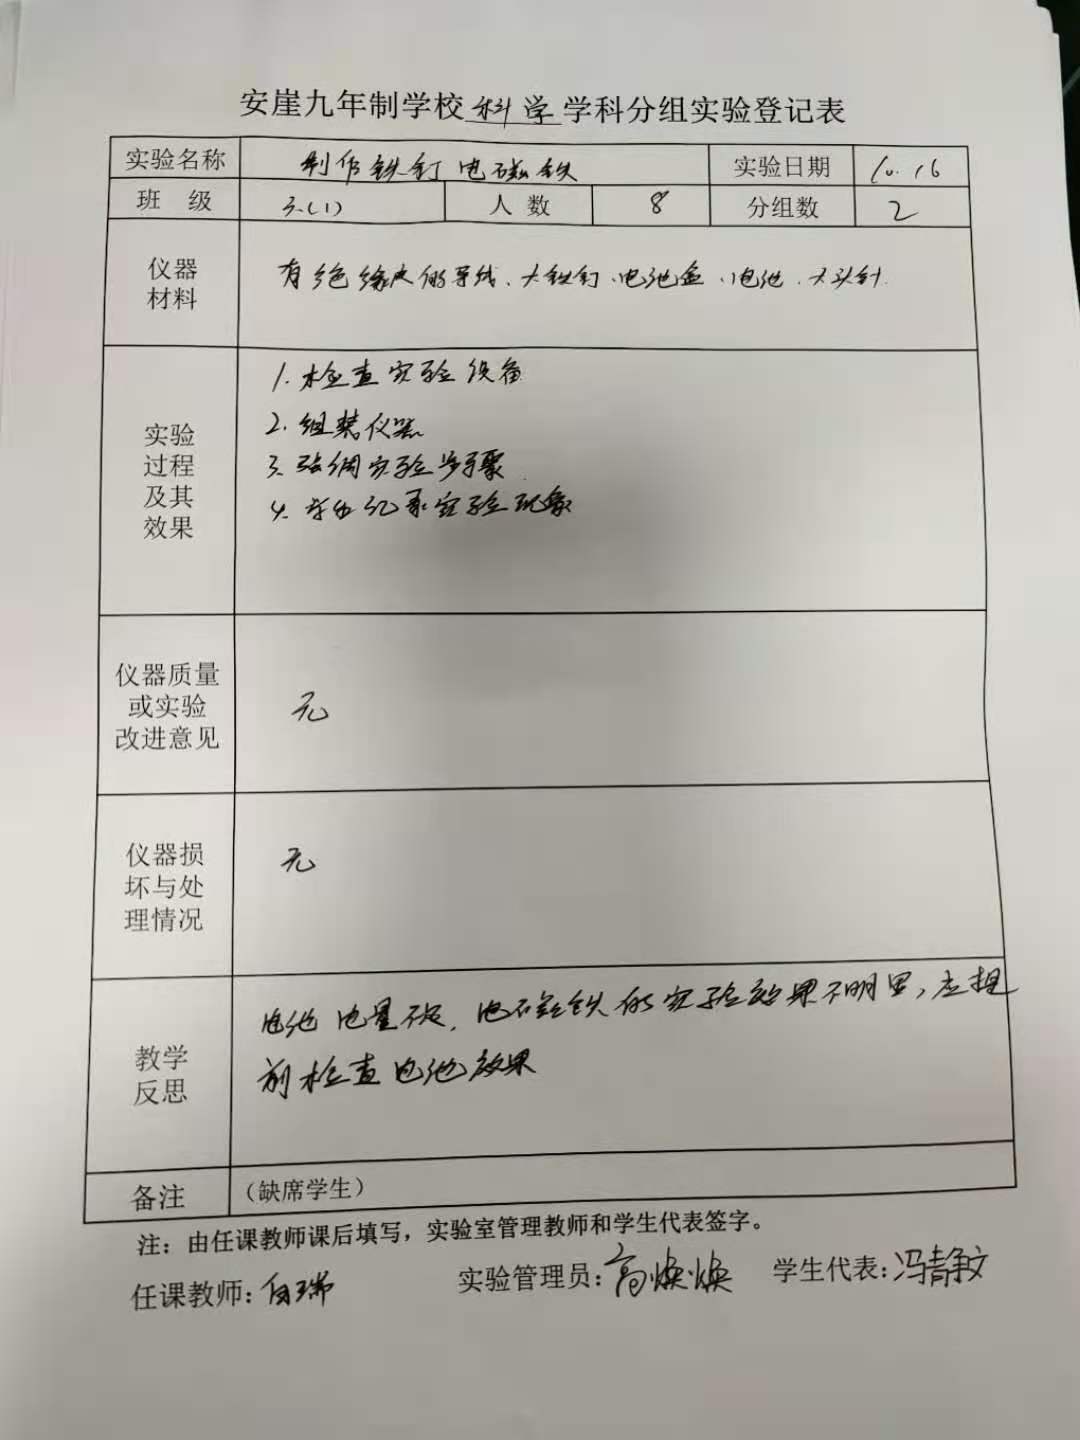 安崖九年制学校科学学科分组实验登记表
实验名称 制作铁钉电磁铁 实验日期 10.16
班 级 3.(1) 人 数 8 分组数 2
仪器
材料
有绝缘皮的导线、大铁钉、电池盒、电池、大头针
实验
过程
及其
效果
1.检查实验设备
2.组装仪器
3.强调实验步骤
4.学生记录实验现象
仪器质量
或实验
改进意见
无
仪器损
坏与处
理情况
无
教学
反思
电池电量不足,电磁铁的实验效果不明显,应提
前检查电池效果
备注 (缺席学生)
注:由任课教师课后填写,实验室管理教师和学生代表签字。
任课教师:白瑞 实验管理员:高焕焕 学生代表:冯静文